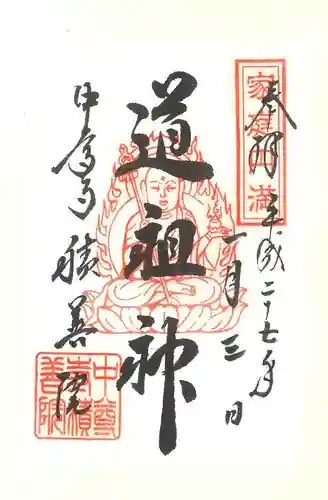 奉拝 平成二十七年
一月三日
道祖神
中尊寺 積善院
家庭円満
中尊
寺積
善院